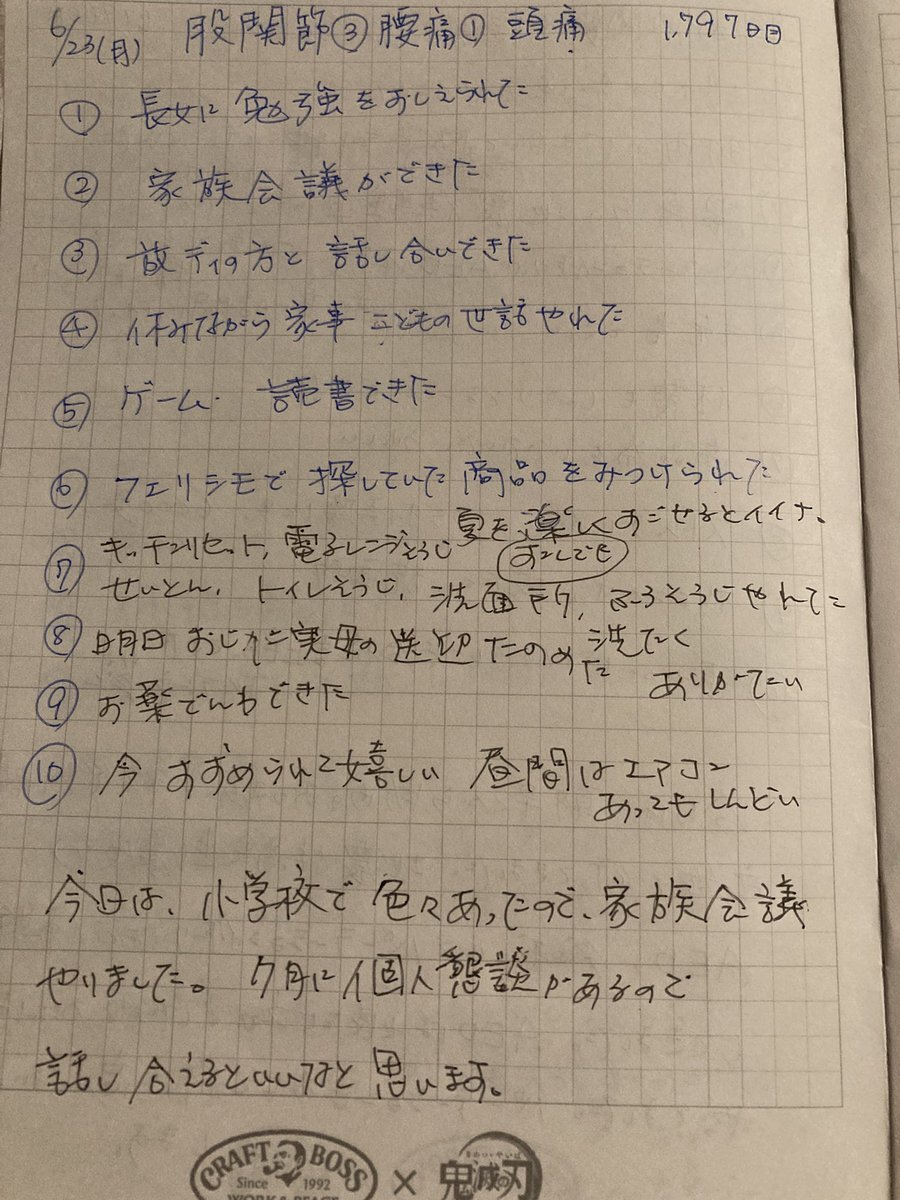 6/23(月) 股関節③腰痛① 頭痛 1,797日目
① 長女に勉強をおしえられた
② 家族会議ができた
③ 放デイの方と話し合いできた
④ 休みながら家事 こどものせ話やれた
⑤ ゲーム・読書できた
⑥ フェリシモで探していた商品をみつけられた
夏を楽しくすごせるとイイナ。
すこしでも
⑦ キッチンリセット、電子レンジそうじ
せいとん、トイレそうじ、洗面所、ふろそうじやれた
⑧ 明日 おじかご実母の送迎たのめた 洗たく
ありがたい
⑨ お薬でんわできた
⑩ 今 すずめられて嬉しい 昼間はエアコン
あってもしんどい
今日は、小学校で色々あったので、家族会議
やりました。7月に個人懇談があるので
話し合えるといいなと思います。
CRAFT BOSS
Since 1992
WORK & PEACE
×
鬼滅の刃